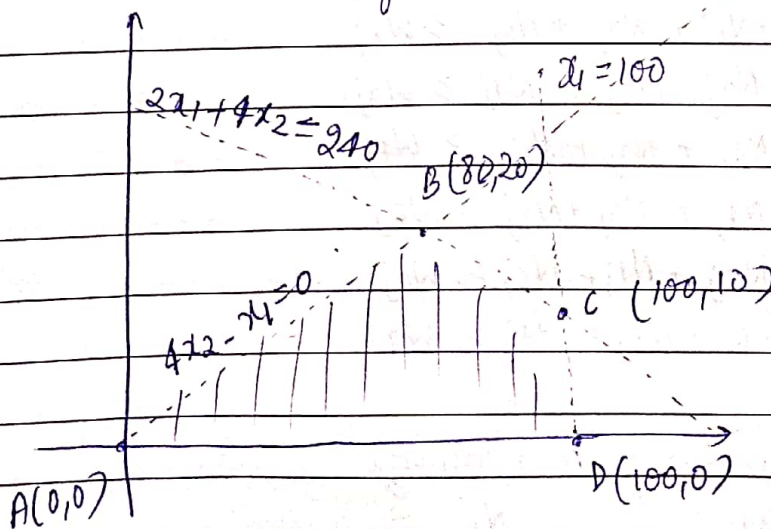 x1 = 100
2x1 + 4x2 = 240
B(80,20)
4x2 - x1 = 0
C (100,10)
A(0,0)
D(100,0)